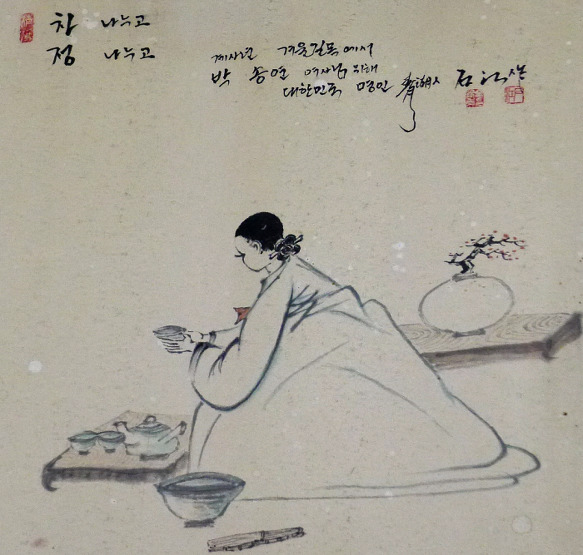 차 나누고
정 나누고
계사년 겨울길목에서
박송연 여사님 위해
대한민국 명인